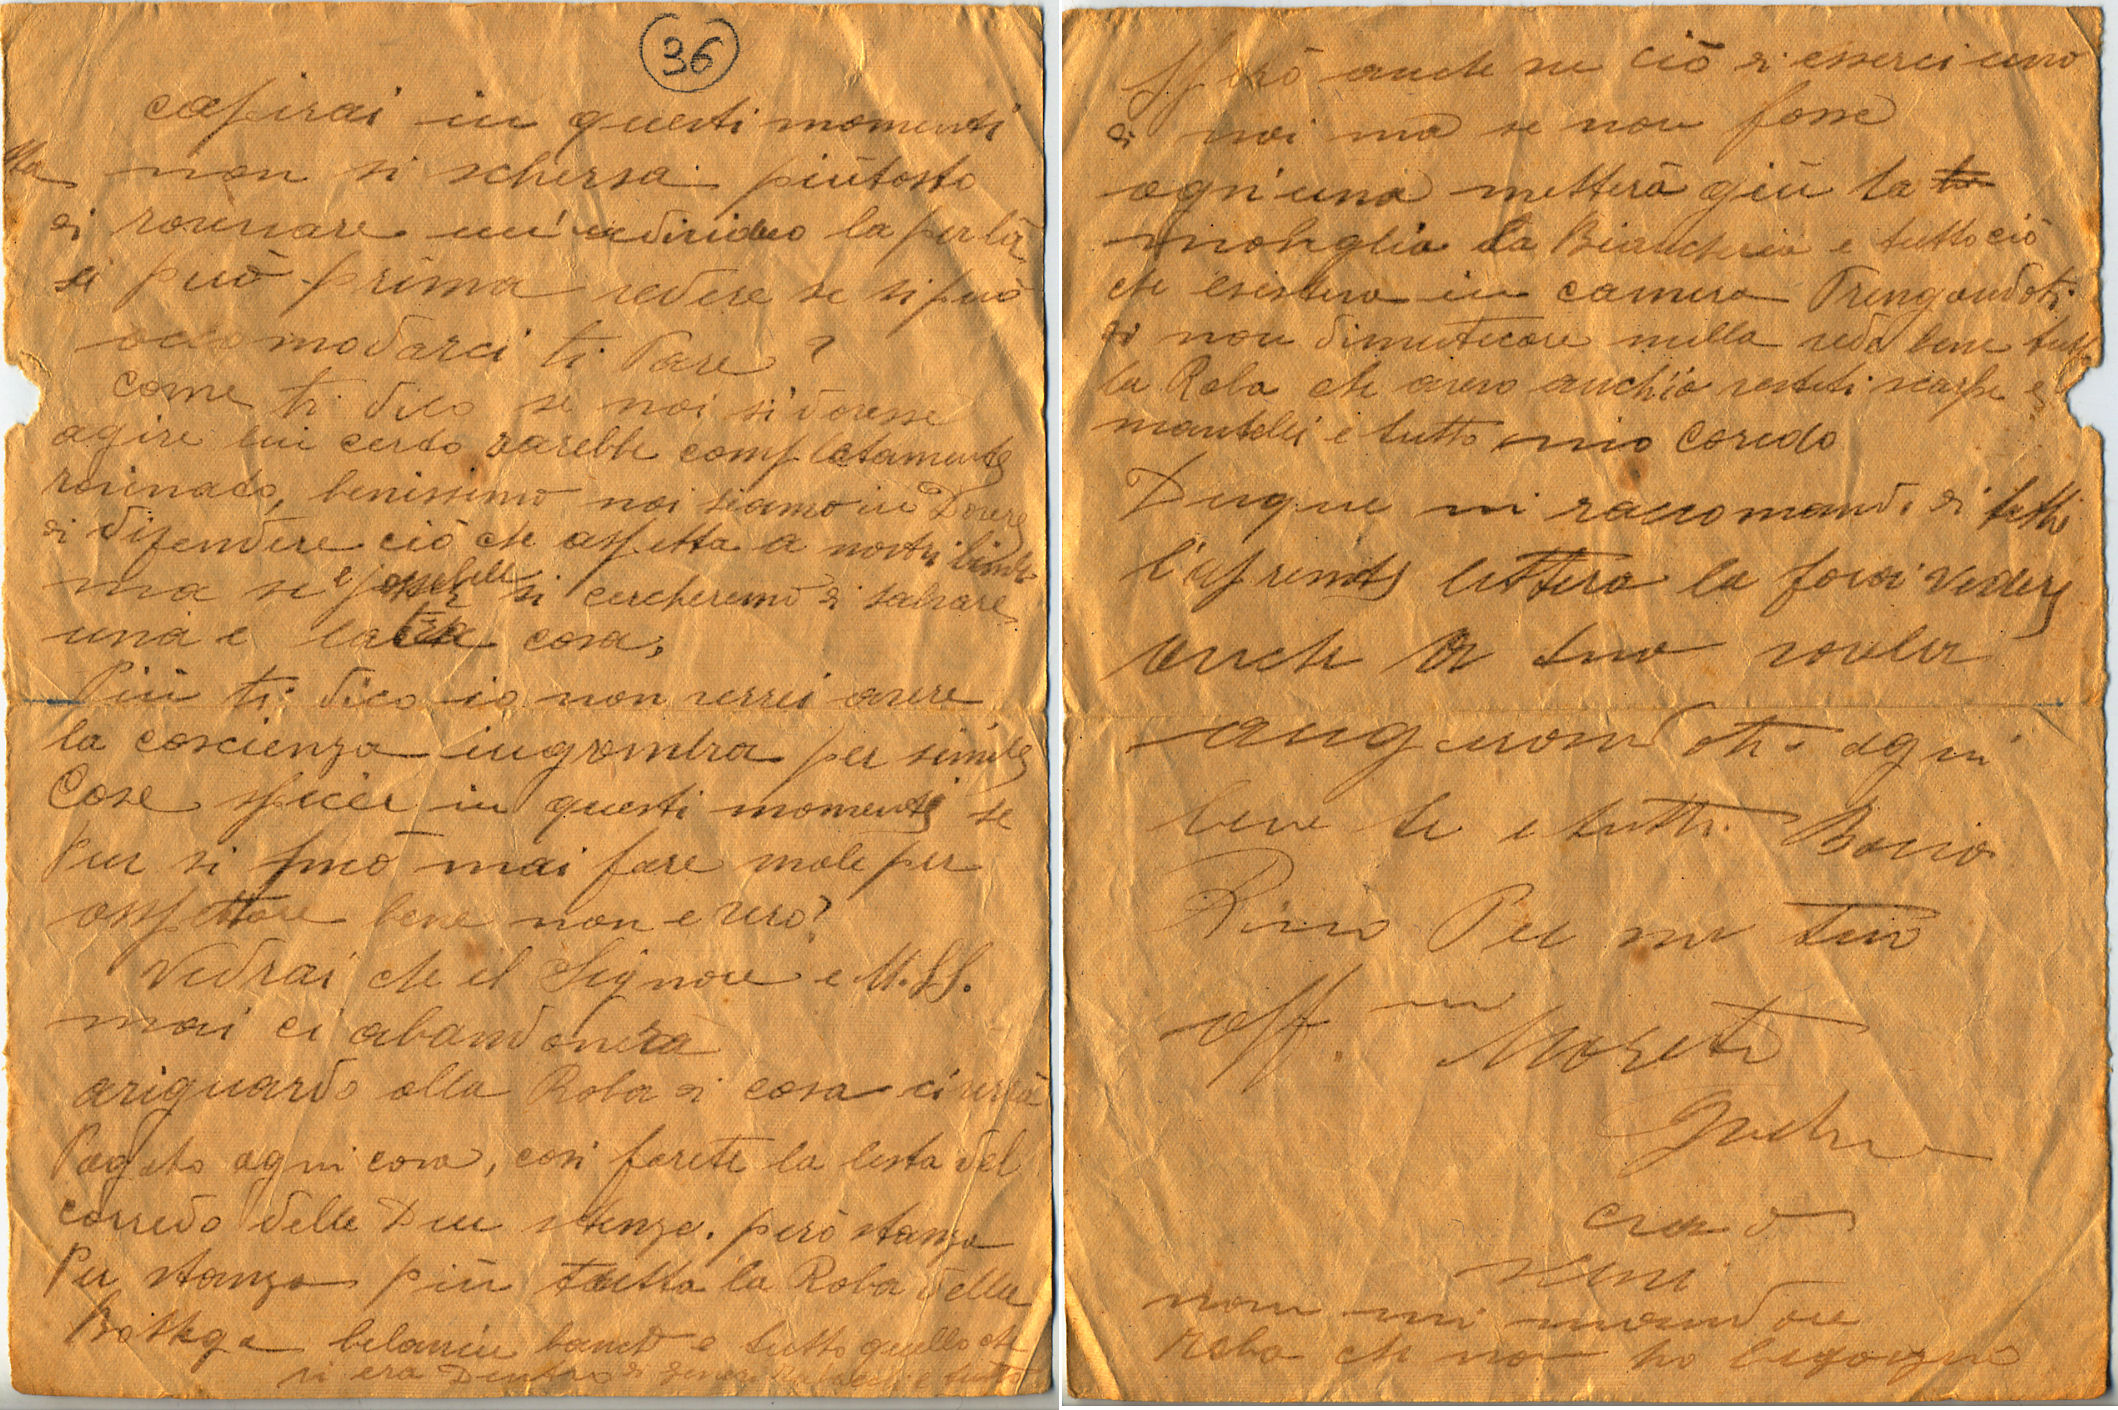 36
capirai in questi momenti
Ma non si schersa piùtosto
di rovinare un'individuo la per là
si può prima vedere se si può
accomodarci ti Pare?
Come ti dico se noi si dovesse
agire lui certo sarebbe completamente
rovinato, benissimo noi siamo in Dovere
di difendere ciò che aspetta a nostri bimbi
ma se è possibile si cercheremo di salvare
una e latra cosa,
Più ti dico io non verrei avere
la coscienza ingrombra per simile
Cose specie in questi momenti se
Pur si può mai fare male per
asspettare bene non e vero?
Vedrai che il Signore e M.SS.
mai ci abandonerà
ariguardo alla Roba di casa ci verrà
Pagato ogni cosa, cosi farete la lista del
corredo delle Due stenze. però stanza
Per stanza più tutta la Roba della
Bottega belancie banco e tutto quello che
vi era Dentro di e tutto
Spero anche su ciò di esserci uno
di noi ma se non fosse
ogn'una metterà giù la
mobiglia la Biancheria e tutto ciò
che esisteva in camera Pregandoti
di non dimenticare nulla vedi bene tutta
la Roba che avevo anch'io vestiti scarpe e
mantelli e tutto mio Coredo
Duque mi raccomando di tutto
l'aprendi lettera la farai vedere
anche a tuo
augurandoti ogni
bene te e tutti Bacia
Rino Per me tuo
aff. mo
non mi mandare
Roba che non ho bisogno